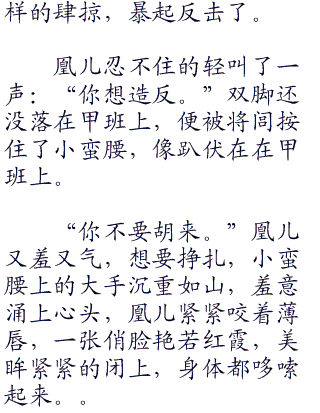 样的肆掠，暴起反击了。
凰儿忍不住的轻叫了一
声：“你想造反。”双脚还
没落在甲班上，便被将闾按
住了小蛮腰，像趴伏在在甲
班上。
“你不要胡来。”凰儿
又羞又气，想要挣扎，小蛮
腰上的大手沉重如山，羞意
涌上心头，凰儿紧紧咬着薄
唇，一张俏脸艳若红霞，美
眸紧紧的闭上，身体都哆嗦
起来。。